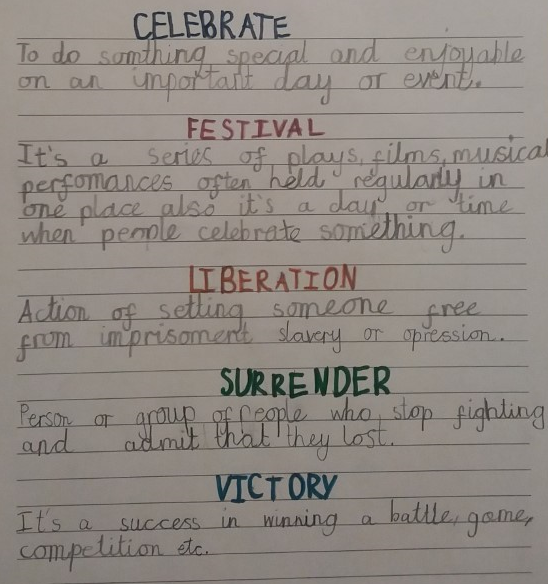 CELEBRATE
To do somthing special and enjoyable
on an important day or event.
FESTIVAL
It's a series of plays, films, musical
perfomances often held regularly in
one place also it's a day or time
when people celebrate something.
LIBERATION
Action of setting someone free
from imprisoment slavery or opression.
SURRENDER
Person or group of People who stop fighting
and admit that they lost.
VICTORY
It's a success in winning a battle, game,
competition etc.